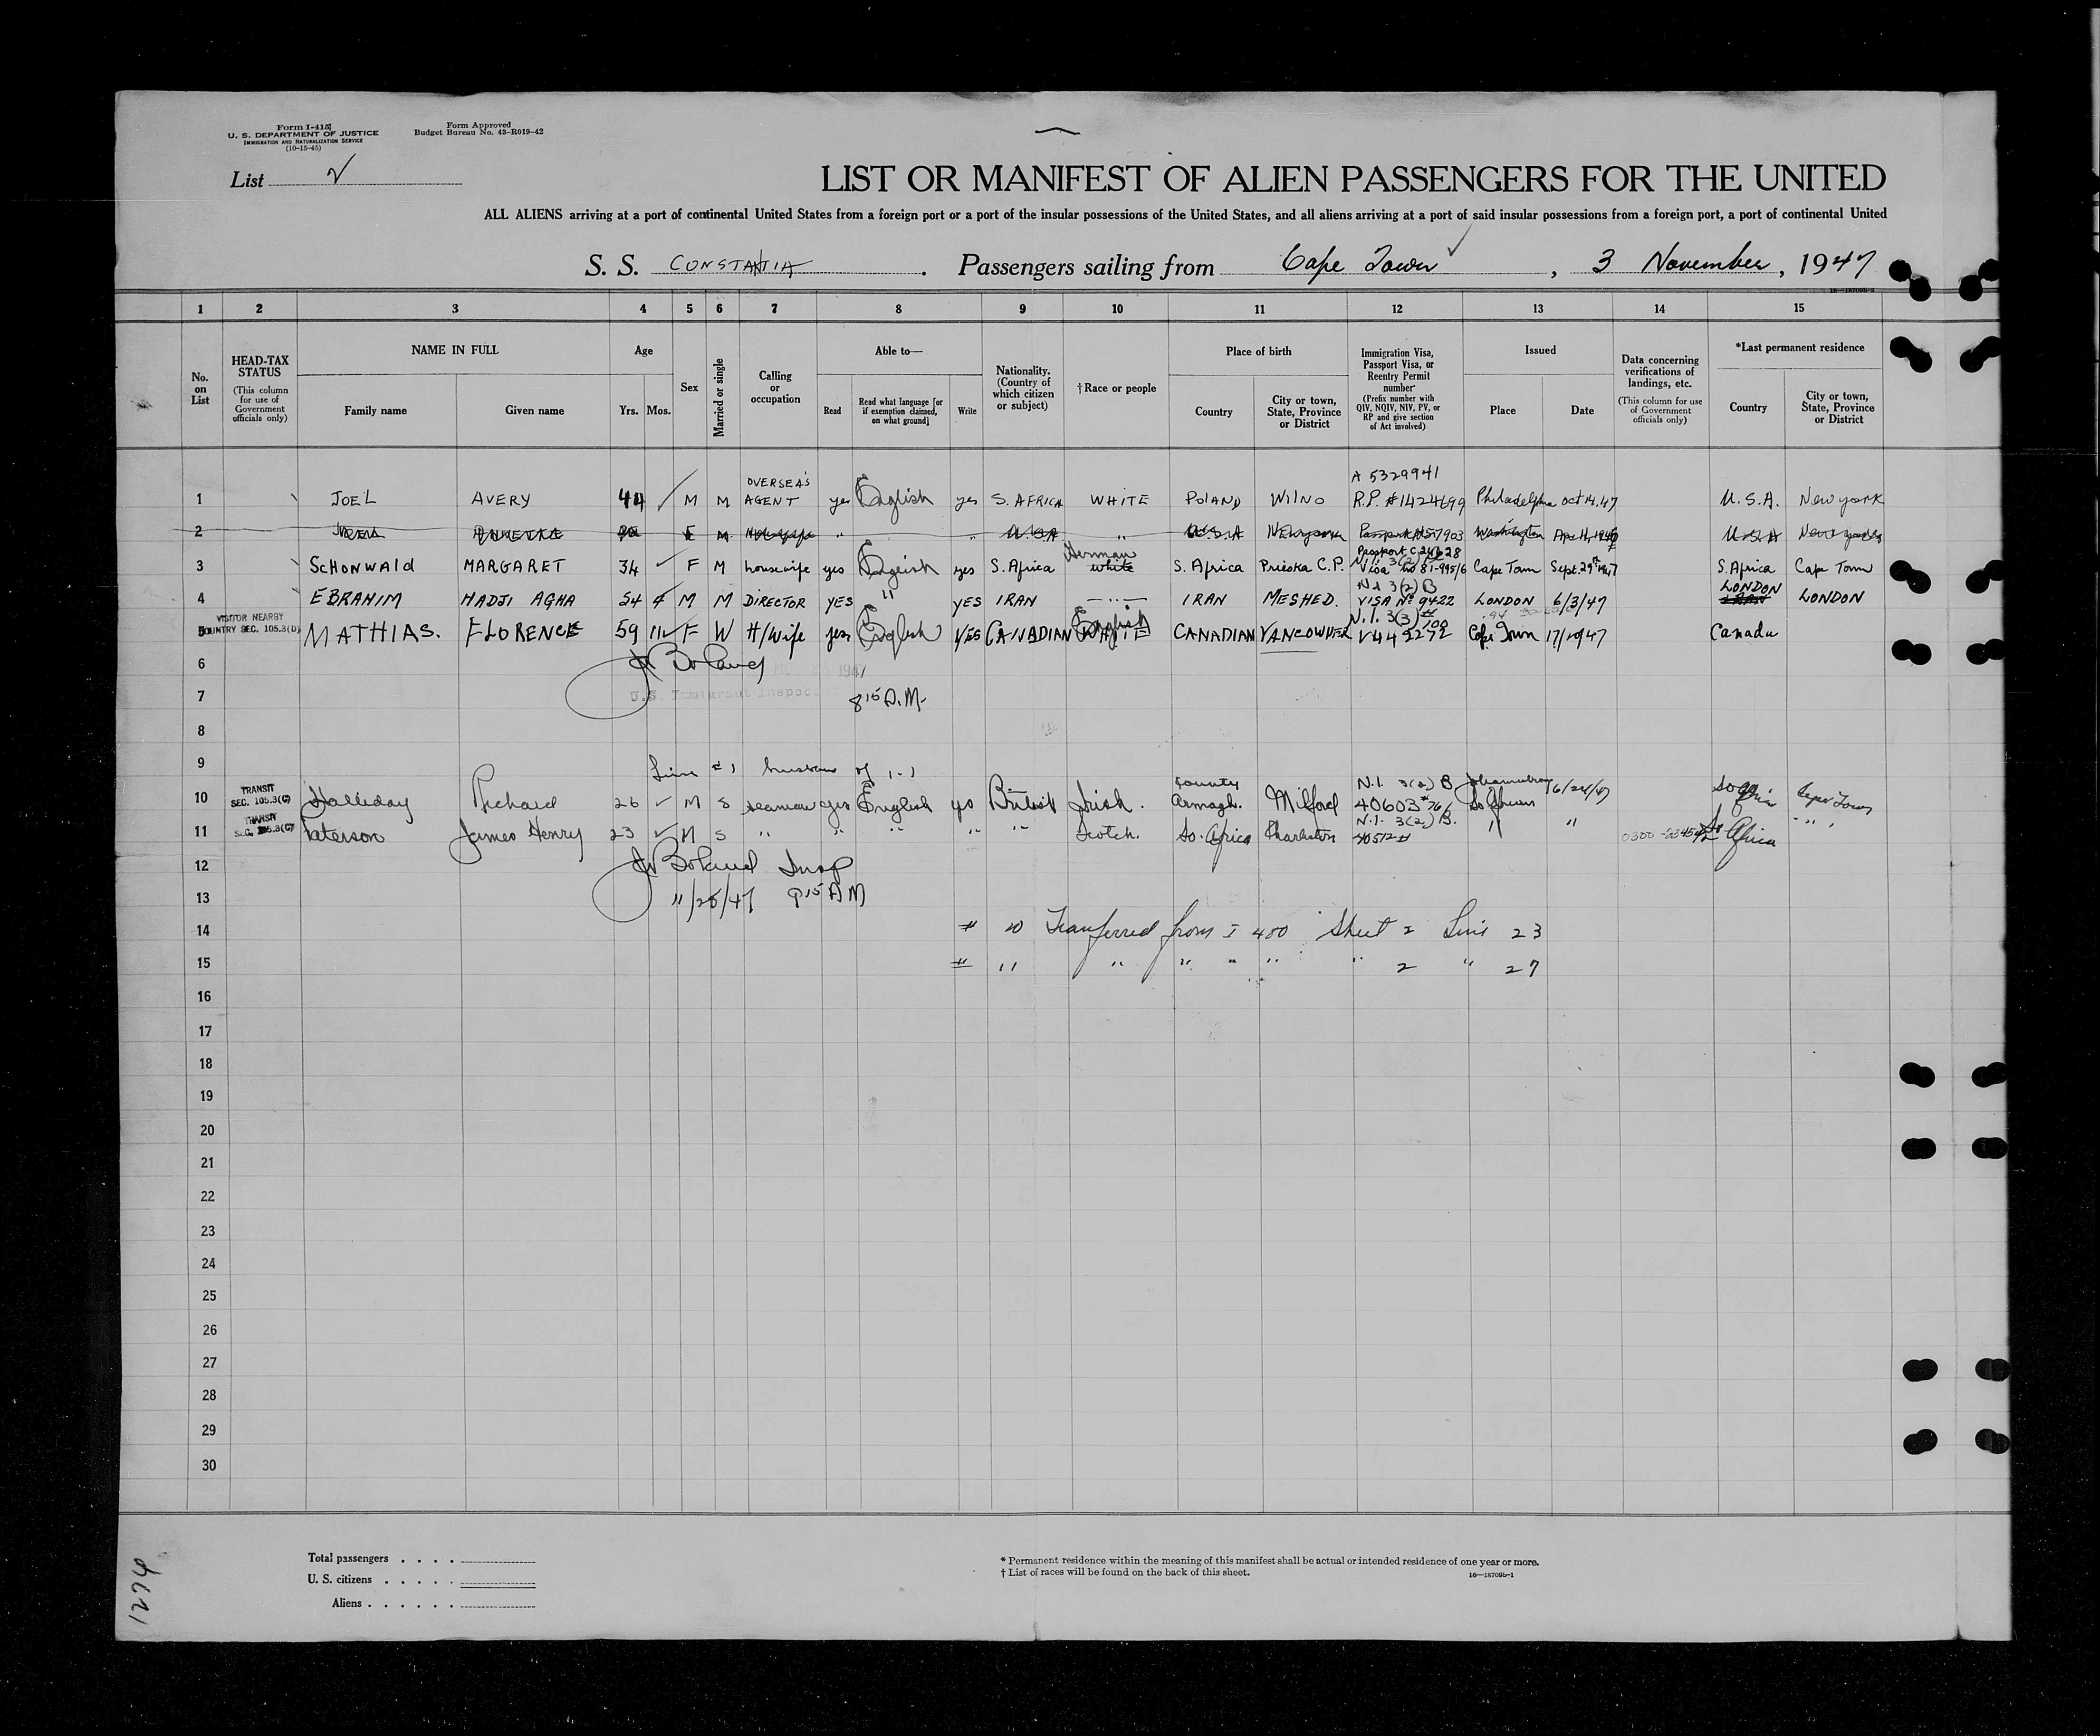 Form I-415
U. S. DEPARTMENT OF JUSTICE
IMMIGRATION AND NATURALIZATION SERVICE
(10-15-45)
Form Approved
Budget Bureau No. 43-R019-42
List
LIST OR MANIFEST OF ALIEN PASSENGERS FOR THE UNITED
ALL ALIENS arriving at a port of continental United States from a foreign port or a port of the insular possessions of the United States, and all aliens arriving at a port of said insular possessions from a foreign port, a port of continental United
S. S. CONSTANTIA . Passengers sailing from Cape Town , 3 November , 1947
16—18709b-2
1 2 3 4 5 6 7 8 9 10 11 12 13 14 15
No. on List
HEAD-TAX STATUS
(This column for use of Government officials only)
NAME IN FULL
Family name
Given name
Age
Yrs. Mos.
Sex
Married or single
Calling or occupation
Able to—
Read
Read what language [or if exemption claimed, on what ground]
Write
Nationality. (Country of which citizen or subject)
†Race or people
Place of birth
Country
City or town, State, Province or District
Immigration Visa, Passport Visa, or Reentry Permit number
(Prefix number with QIV, NQIV, NIV, PV, or RP and give section of Act involved)
Issued
Place
Date
Data concerning verifications of landings, etc.
(This column for use of Government officials only)
*Last permanent residence
Country
City or town, State, Province or District
A 5329941
1 JOEL AVERY 44 M M OVERSEAS AGENT yes English yes S. AFRICA WHITE POLAND WILNO R.P. #1424699 Philadelphia Oct 14.47 U.S.A. New york
2 F M " " U.S.A " U.S.A New york Washington U.S.A New york
3 SCHONWALD MARGARET 34 F M housewife yes English yes S. Africa German white S. Africa Prieska C.P. Visa Cape Town Sept. 29th 1947 S. Africa Cape Town
N.I. 3(2) B
4 EBRAHIM HADJI AGHA 54 M M DIRECTOR YES " YES IRAN —"— IRAN MESHED. VISA No 9422 LONDON 6/3/47 LONDON LONDON
VISITOR NEARBY
COUNTRY SEC. 105.3(D)
N.I. 3(3)
5 MATHIAS. FLORENCE 59 11 F W H/Wife yes English YES CANADIAN English WHITE CANADIAN VANCOUVER V442272 Cape Town 17/10/47 Canada
6 Boland 1947
7 U.S. Immigrant Inspector 8 15 A.M.
8
9 Line #1 husband of
TRANSIT
SEC. 105.3(C)
10 Halliday Richard 26 M S seaman yes English yes British Irish. County Armagh. Milford N.I. 3(2) B 40603 Johannesburg So African 6/24/47 So Africa Cape Town
TRANSIT
SEC. 105.3(C)
11 Paterson James Henry 23 M S " " " " " Scotch. So. Africa Charleston N.I. 3(2) B. " " So Africa " "
12 Boland Insp
13 11/28/47 9 15 AM
14 # 10 Tranferred from I 480 Sheet 2 Line 23
15 " 11 " " " " " 2 " 27
16
17
18
19
20
21
22
23
24
25
26
27
28
29
30
Total passengers . . . .
U. S. citizens . . . . .
Aliens . . . . . .
* Permanent residence within the meaning of this manifest shall be actual or intended residence of one year or more.
† List of races will be found on the back of this sheet.
16—18709b-1